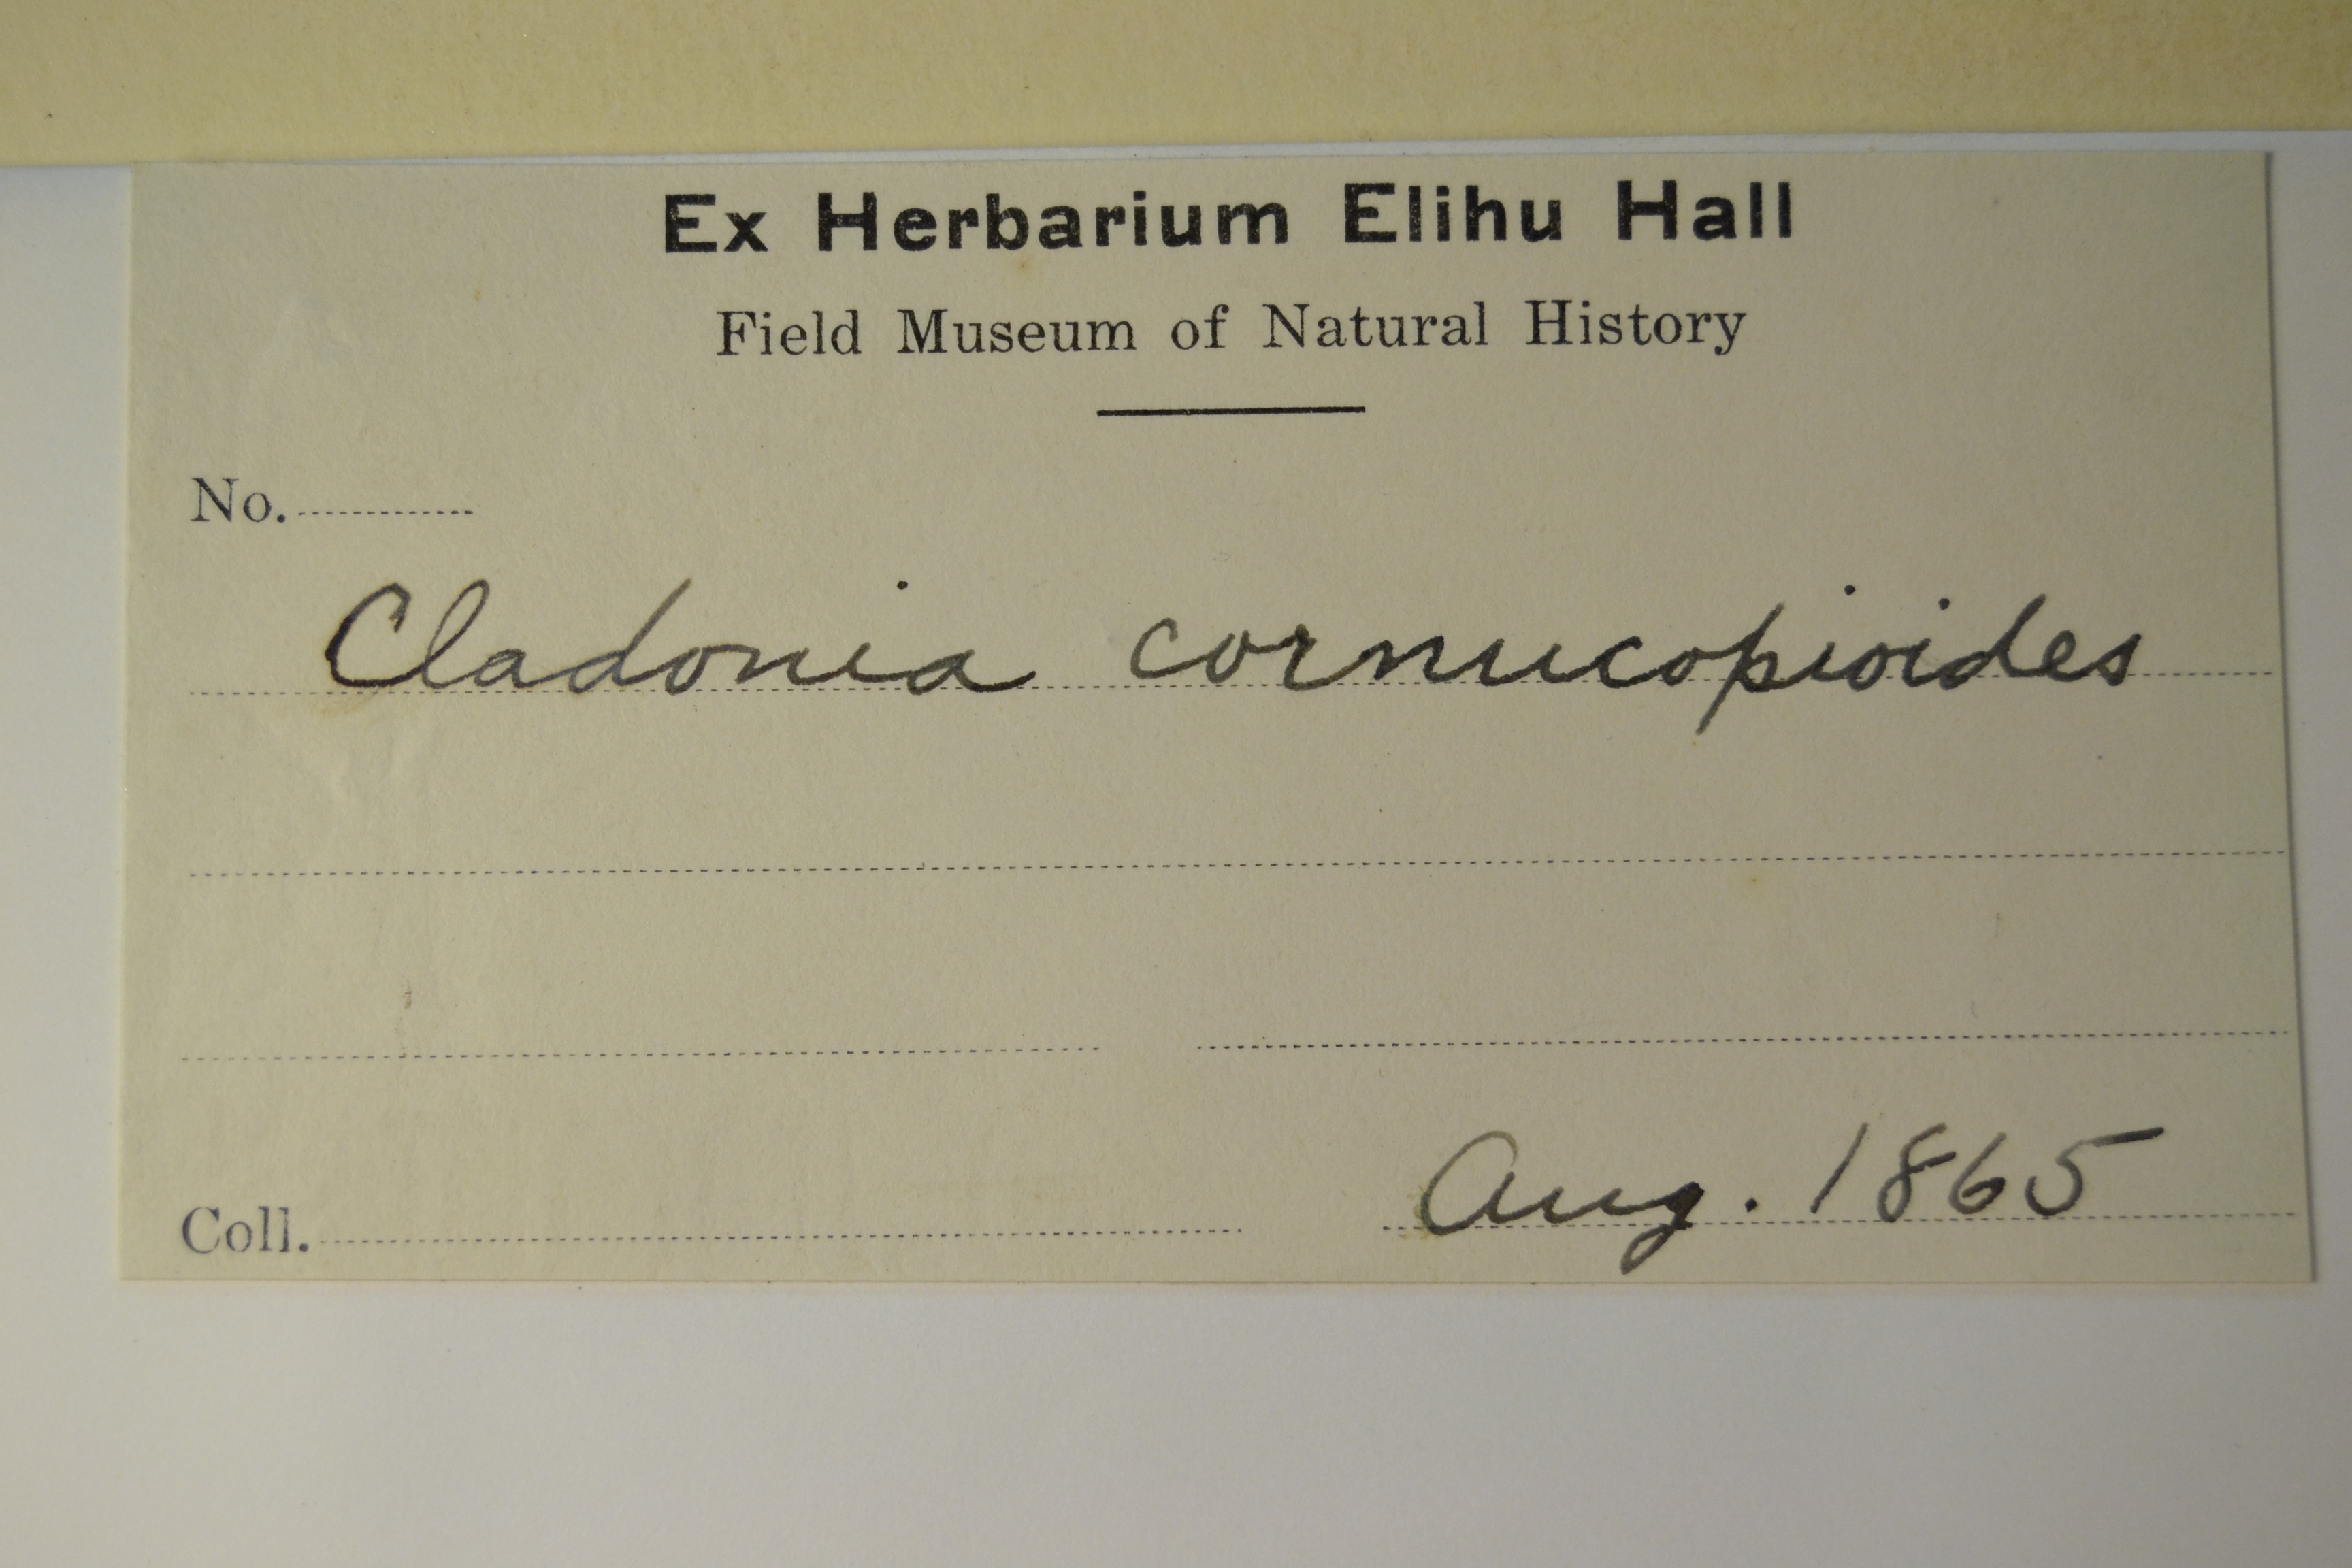 Ex Herbarium Elihu Hall
Field Museum of Natural History
No.
Cladonia cornucopioides
Coll. Aug. 1865